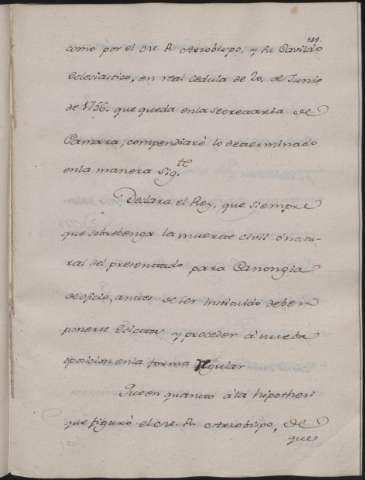 como por el M. R. Arzobispo, y su Cavildo
Eclesiastico, en real cedula de 20, de Junio
de 1766. que queda en la secretaria de
Camara; compendiaré lo determinado
en la manera sig.te
Declara el Rey, que siempre
que sobrebenga la muerte civil ó natu-
ral del presentado para Canongia
de oficio, antes de ser instituido deben
ponerse Edictos y proceder á nueva
oposicion en la forma regular
Que en quanto á la hipothesi
que figuró el M. R. Arzobispo, de
que